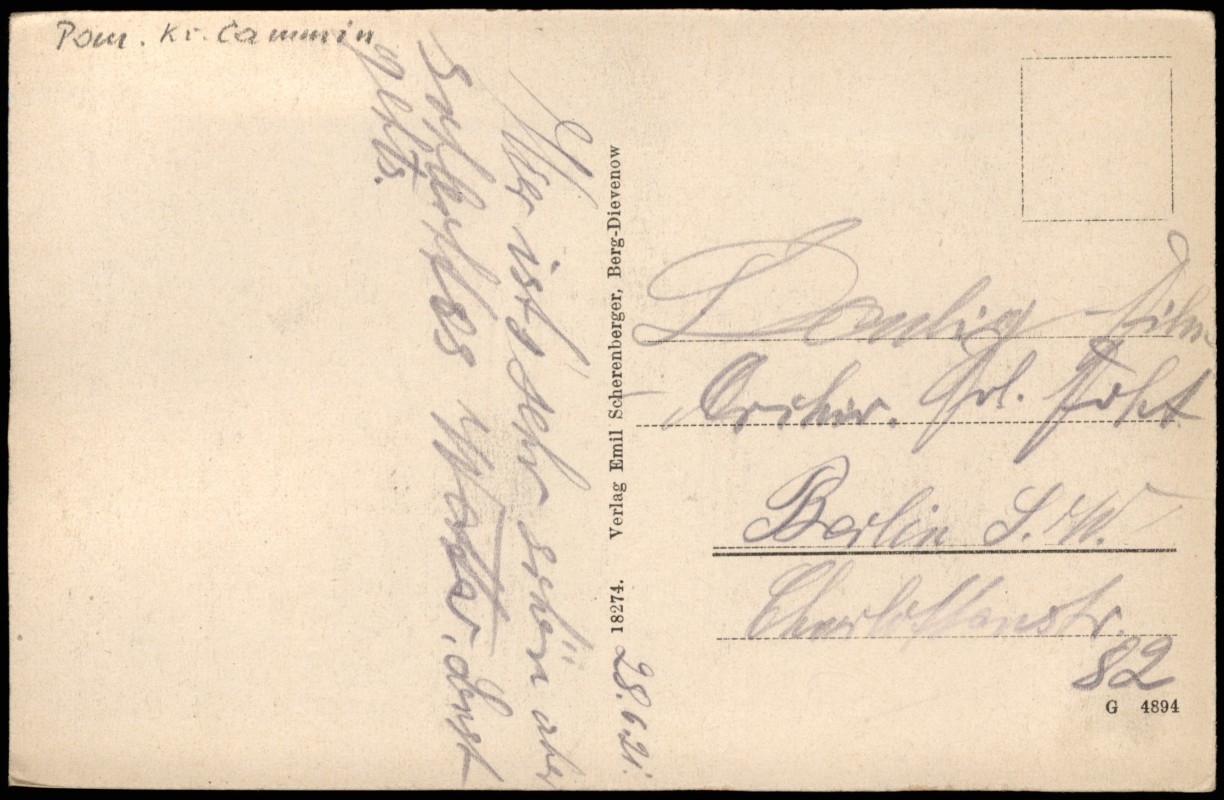 Pom. Kr. Cammin
28.6.21.
Hier ist's sehr schön aber
schlechtes Wetter, sonst
geht's.
18274. Verlag Emil Scherenberger, Berg-Dievenow
Film
Frl.
Berlin S.W.
Charlottenstr.
82
G 4894